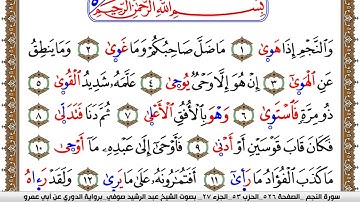 بِسْمِ اللَّهِ الرَّحْمَٰنِ الرَّحِيمِ
وَالنَّجْمِ إِذَا هَوَىٰ ١ مَا ضَلَّ صَاحِبُكُمْ وَمَا غَوَىٰ ٢ وَمَا يَنطِقُ
عَنِ الْهَوَىٰ ٣ إِنْ هُوَ إِلَّا وَحْيٌ يُوحَىٰ ٤ عَلَّمَهُ شَدِيدُ الْقُوَىٰ ٥
ذُو مِرَّةٍ فَاسْتَوَىٰ ٦ وَهْوَ بِالْأُفُقِ الْأَعْلَىٰ ٧ ثُمَّ دَنَا فَتَدَلَّىٰ ٨
فَكَانَ قَابَ قَوْسَيْنِ أَوْ أَدْنَىٰ ٩ فَأَوْحَىٰ إِلَىٰ عَبْدِهِ مَا أَوْحَىٰ ١٠
مَا كَذَبَ الْفُؤَادُ مَا رَأَىٰ ١١ أَفَتُمَارُونَهُ عَلَىٰ مَا يَرَىٰ ١٢ وَلَقَدْ رَءَاهُ
سورة النجم _الصفحة ٥٢٦ _الحزب ٥٣ _الجزء ٢٧ _بصوت الشيخ عبد الرشيد صوفي _برواية الدوري عن أبي عمرو